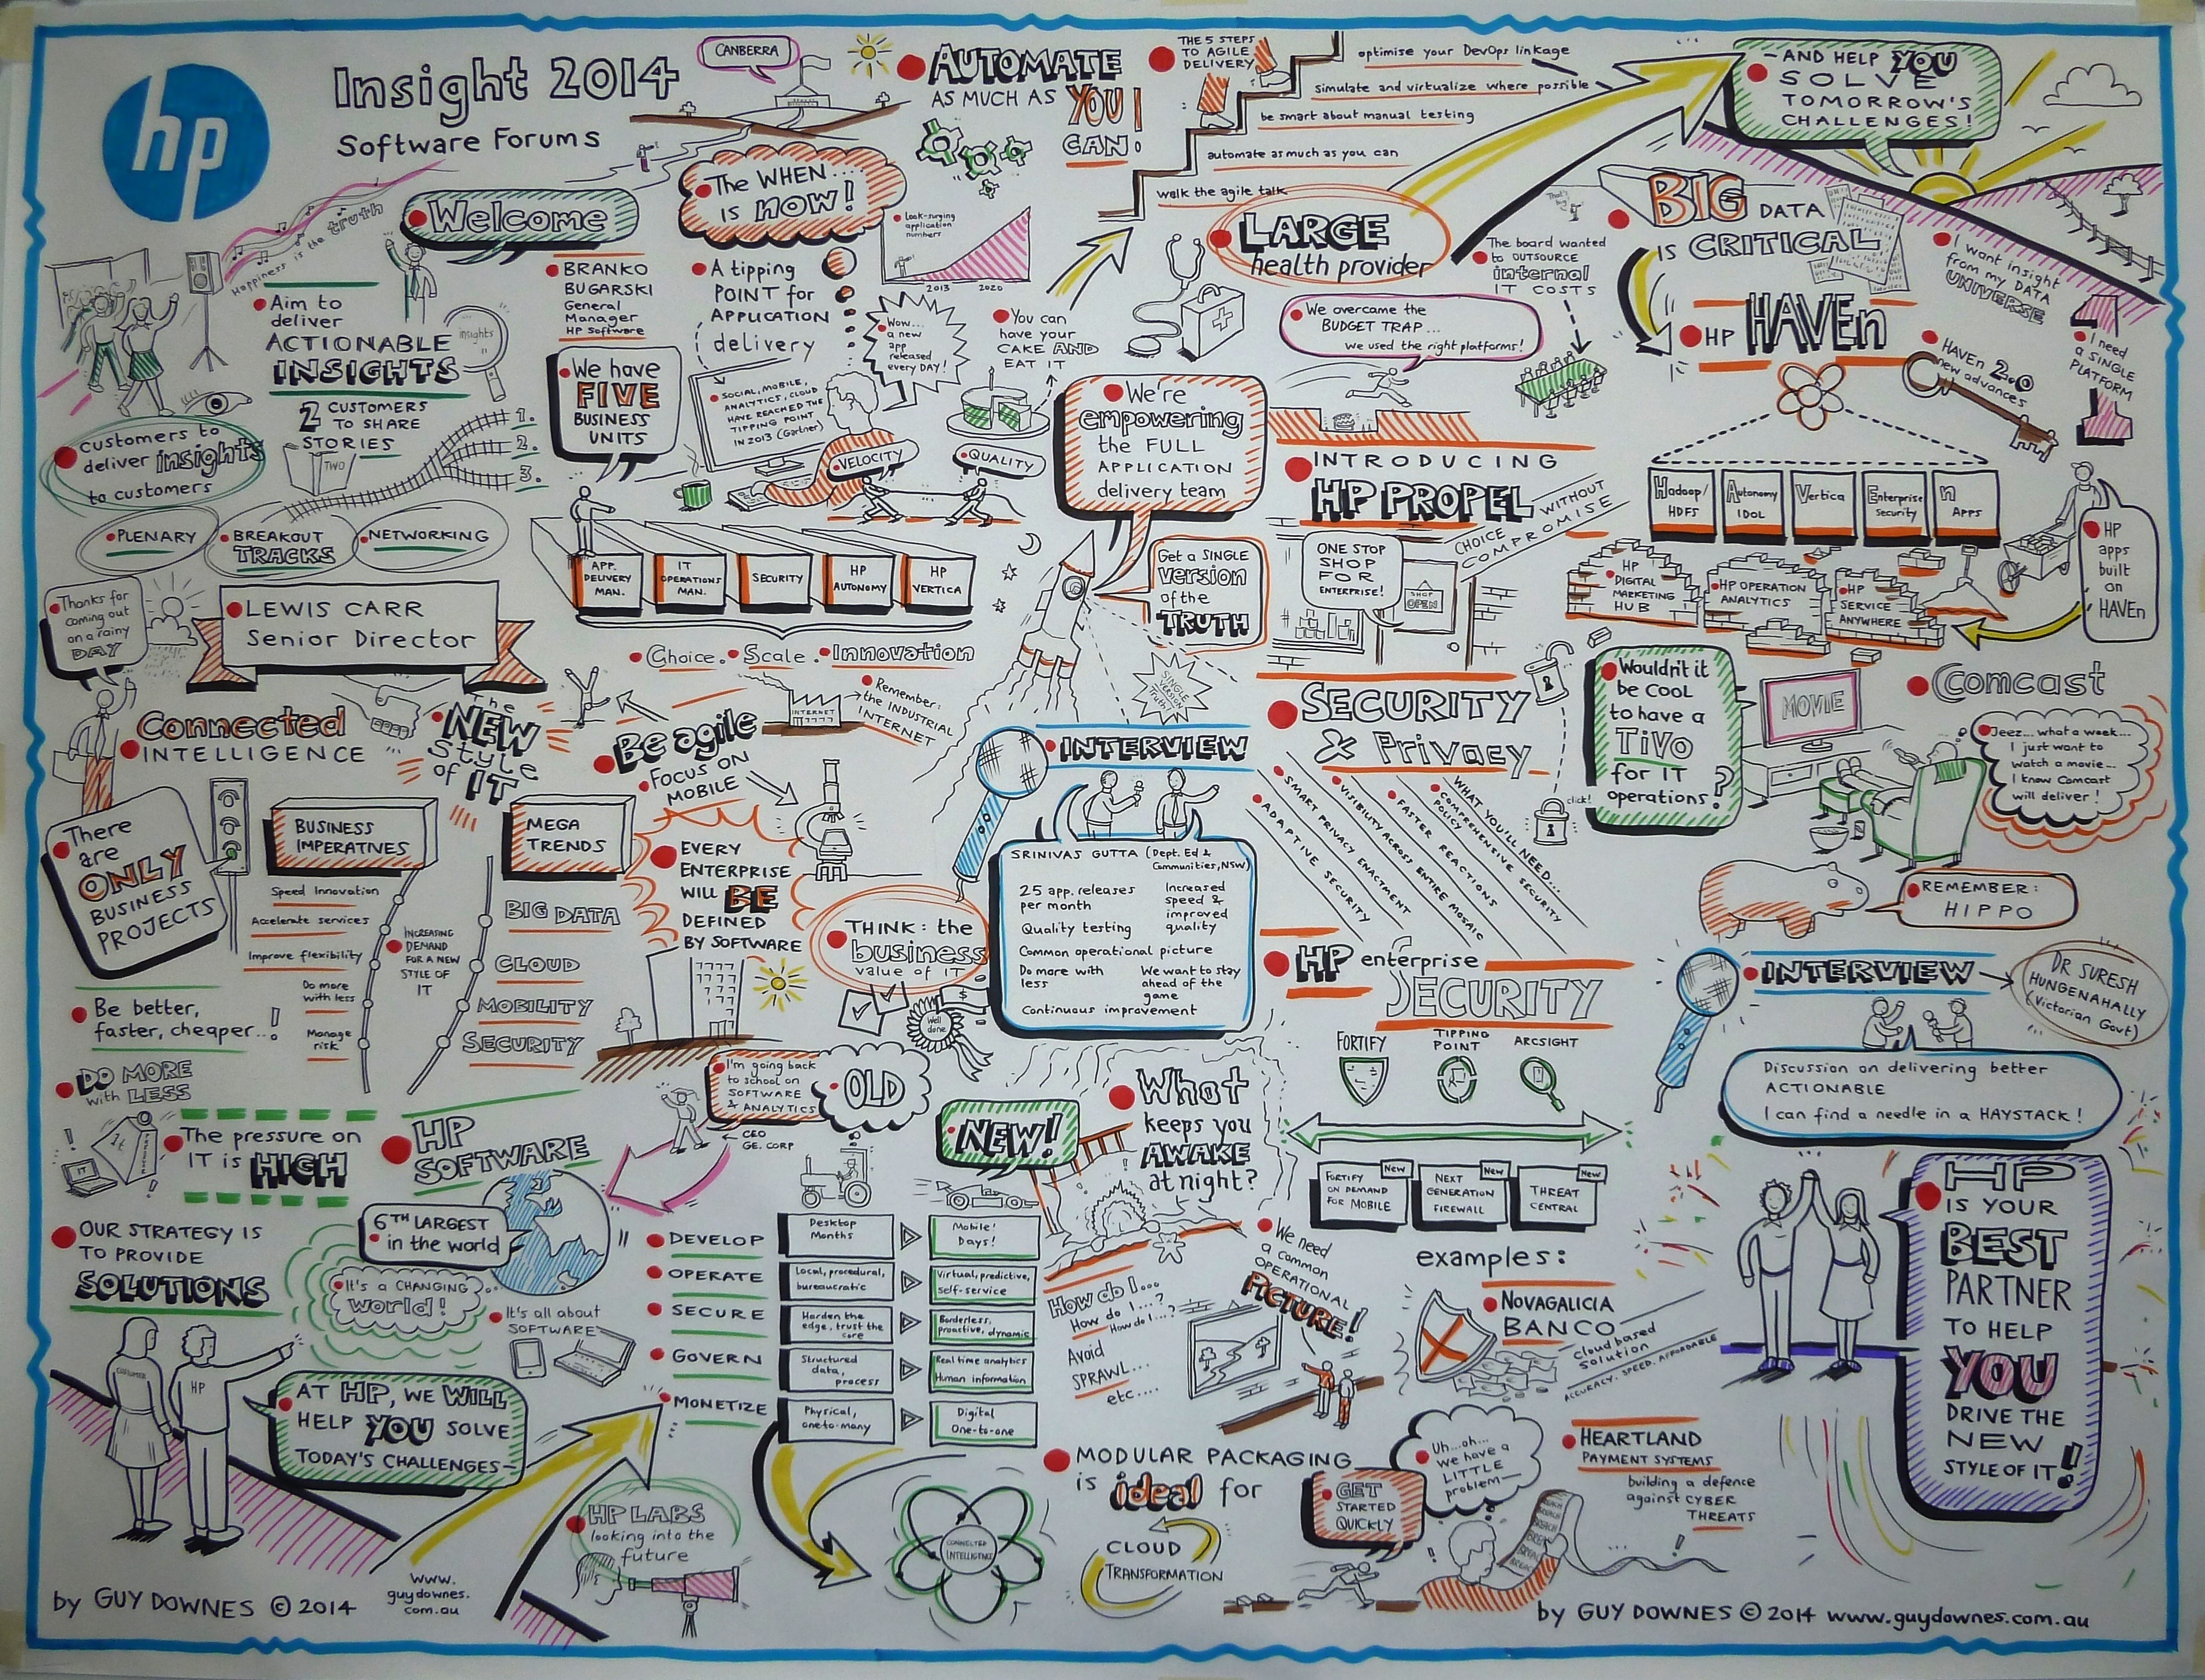 hp
Insight 2014
Software Forums
CANBERRA
AUTOMATE
AS MUCH AS YOU
CAN!
THE 5 STEPS
TO AGILE
DELIVERY
optimise your DevOps linkage
simulate and virtualize where possible
be smart about manual testing
automate as much as you can
walk the agile talk
- AND HELP YOU
SOLVE
TOMORROW'S
CHALLENGES!
Happiness is the truth
Welcome
The WHEN....
is NOW!
Look-surging
application
numbers
2013 2020
LARGE
health provider
That's big!
The board wanted
to OUTSOURCE
internal
IT COSTS
BIG DATA
is CRITICAL
I want insight
from my DATA
UNIVERSE
Aim to
deliver
ACTIONABLE
INSIGHTS
insights
BRANKO
BUGARSKI
General
Manager
HP Software
A tipping
POINT for
APPLICATION
delivery
Wow...
a new
app
released
every DAY!
You can
have your
CAKE AND
EAT IT
We overcame the
BUDGET TRAP...
we used the right platforms!
HP HAVEn
HAVEn 2.0
new advances
I need
a SINGLE
PLATFORM
2 CUSTOMERS
TO SHARE
STORIES
TWO
1.
2.
3.
We have
FIVE
BUSINESS
UNITS
SOCIAL, MOBILE,
ANALYTICS, CLOUD
HAVE REACHED THE
TIPPING POINT
IN 2013 (Gartner)
VELOCITY
QUALITY
We're
empowering
the FULL
APPLICATION
delivery team
customers to
deliver insights
to customers
PLENARY
BREAKOUT
TRACKS
NETWORKING
INTRODUCING
HP PROPEL
CHOICE WITHOUT
COMPROMISE
ONE STOP
SHOP
FOR
ENTERPRISE!
SHOP
OPEN
Hadoop/
HDFS
Autonomy
IDOL
Vertica
Enterprise
Security
n
Apps
HP
DIGITAL
MARKETING
HUB
HP OPERATION
ANALYTICS
HP
SERVICE
ANYWHERE
HP
apps
built
on
HAVEn
APP.
DELIVERY
MAN.
IT
OPERATIONS
MAN.
SECURITY
HP
AUTONOMY
HP
VERTICA
Choice. Scale. Innovation
Get a SINGLE
version
of the
TRUTH
SINGLE
VERSION
TRUTH
Thanks for
coming out
on a rainy
DAY
LEWIS CARR
Senior Director
Connected
INTELLIGENCE
The
NEW
Style
of IT
Be agile
FOCUS ON
MOBILE
INTERNET
Remember:
the INDUSTRIAL
INTERNET
SECURITY
& Privacy
WHAT YOU'LL NEED...
COMPREHENSIVE SECURITY
POLICY
FASTER REACTIONS
VISIBILITY ACROSS ENTIRE MOSAIC
SMART PRIVACY ENACTMENT
ADAPTIVE SECURITY
click!
Wouldn't it
be COOL
to have a
TiVo
for IT
operations?
MOVIE
Comcast
Jeez... what a week...
I just want to
watch a movie...
I know Comcast
will deliver!
REMEMBER:
HIPPO
There
are
ONLY
BUSINESS
PROJECTS
BUSINESS
IMPERATIVES
Speed Innovation
Accelerate services
Improve flexibility
Do more
with less
Manage
risk
INCREASING
DEMAND
FOR A NEW
STYLE OF
IT
MEGA
TRENDS
BIG DATA
CLOUD
MOBILITY
SECURITY
EVERY
ENTERPRISE
WILL BE
DEFINED
BY SOFTWARE
THINK: the
business
value of IT
$
Well
done
INTERVIEW
SRINIVAS GUTTA (Dept. Ed &
Communities, NSW)
25 app. releases
per month
Increased
speed &
improved
quality
Quality testing
Common operational picture
Do more with
less
We want to stay
ahead of the
game
Continuous improvement
HP enterprise
SECURITY
FORTIFY
TIPPING
POINT
ARCSIGHT
FORTIFY
ON DEMAND
FOR MOBILE
New
NEXT
GENERATION
FIREWALL
New
THREAT
CENTRAL
New
INTERVIEW
DR SURESH
HUNGENAHALLY
(Victorian Govt)
Discussion on delivering better
ACTIONABLE
I can find a needle in a HAYSTACK!
Be better,
faster, cheaper...!
DO MORE
with LESS
IT
The pressure on
IT is HIGH
HP
SOFTWARE
6TH LARGEST
in the world
It's a CHANGING
world!
It's all about
SOFTWARE
OUR STRATEGY IS
TO PROVIDE
SOLUTIONS
I'm going back
to school on
SOFTWARE
& ANALYTICS
CEO
GE. CORP
OLD
NEW!
DEVELOP
Desktop
Months
Mobile!
Days!
OPERATE
Local, procedural,
bureaucratic
Virtual, predictive,
self-service
SECURE
Harden the
edge, trust the
core
Borderless,
proactive, dynamic
GOVERN
Structured
data,
process
Real time analytics
Human information
MONETIZE
Physical,
one-to-many
Digital
One-to-one
What
keeps you
AWAKE
at night?
How do I...
How do I...?
How do I...?
Avoid
SPRAWL...
etc....
We need
a common
OPERATIONAL
PICTURE!
examples:
NOVAGALICIA
BANCO
cloud based
solution
ACCURACY. SPEED. AFFORDABLE
HEARTLAND
PAYMENT SYSTEMS
building a defence
against CYBER
THREATS
HP
IS YOUR
BEST
PARTNER
TO HELP
YOU
DRIVE THE
NEW
STYLE OF IT!!
CUSTOMER
HP
AT HP, WE WILL
HELP YOU SOLVE
TODAY'S CHALLENGES-
HP LABS
looking into the
future
CONNECTED
INTELLIGENCE
MODULAR PACKAGING
is ideal for
CLOUD
TRANSFORMATION
GET
STARTED
QUICKLY
Uh...oh...
we have a
LITTLE
problem-
BREACH
BREACH
by GUY DOWNES © 2014
www.
guydownes.
com.au
by GUY DOWNES © 2014 www.guydownes.com.au